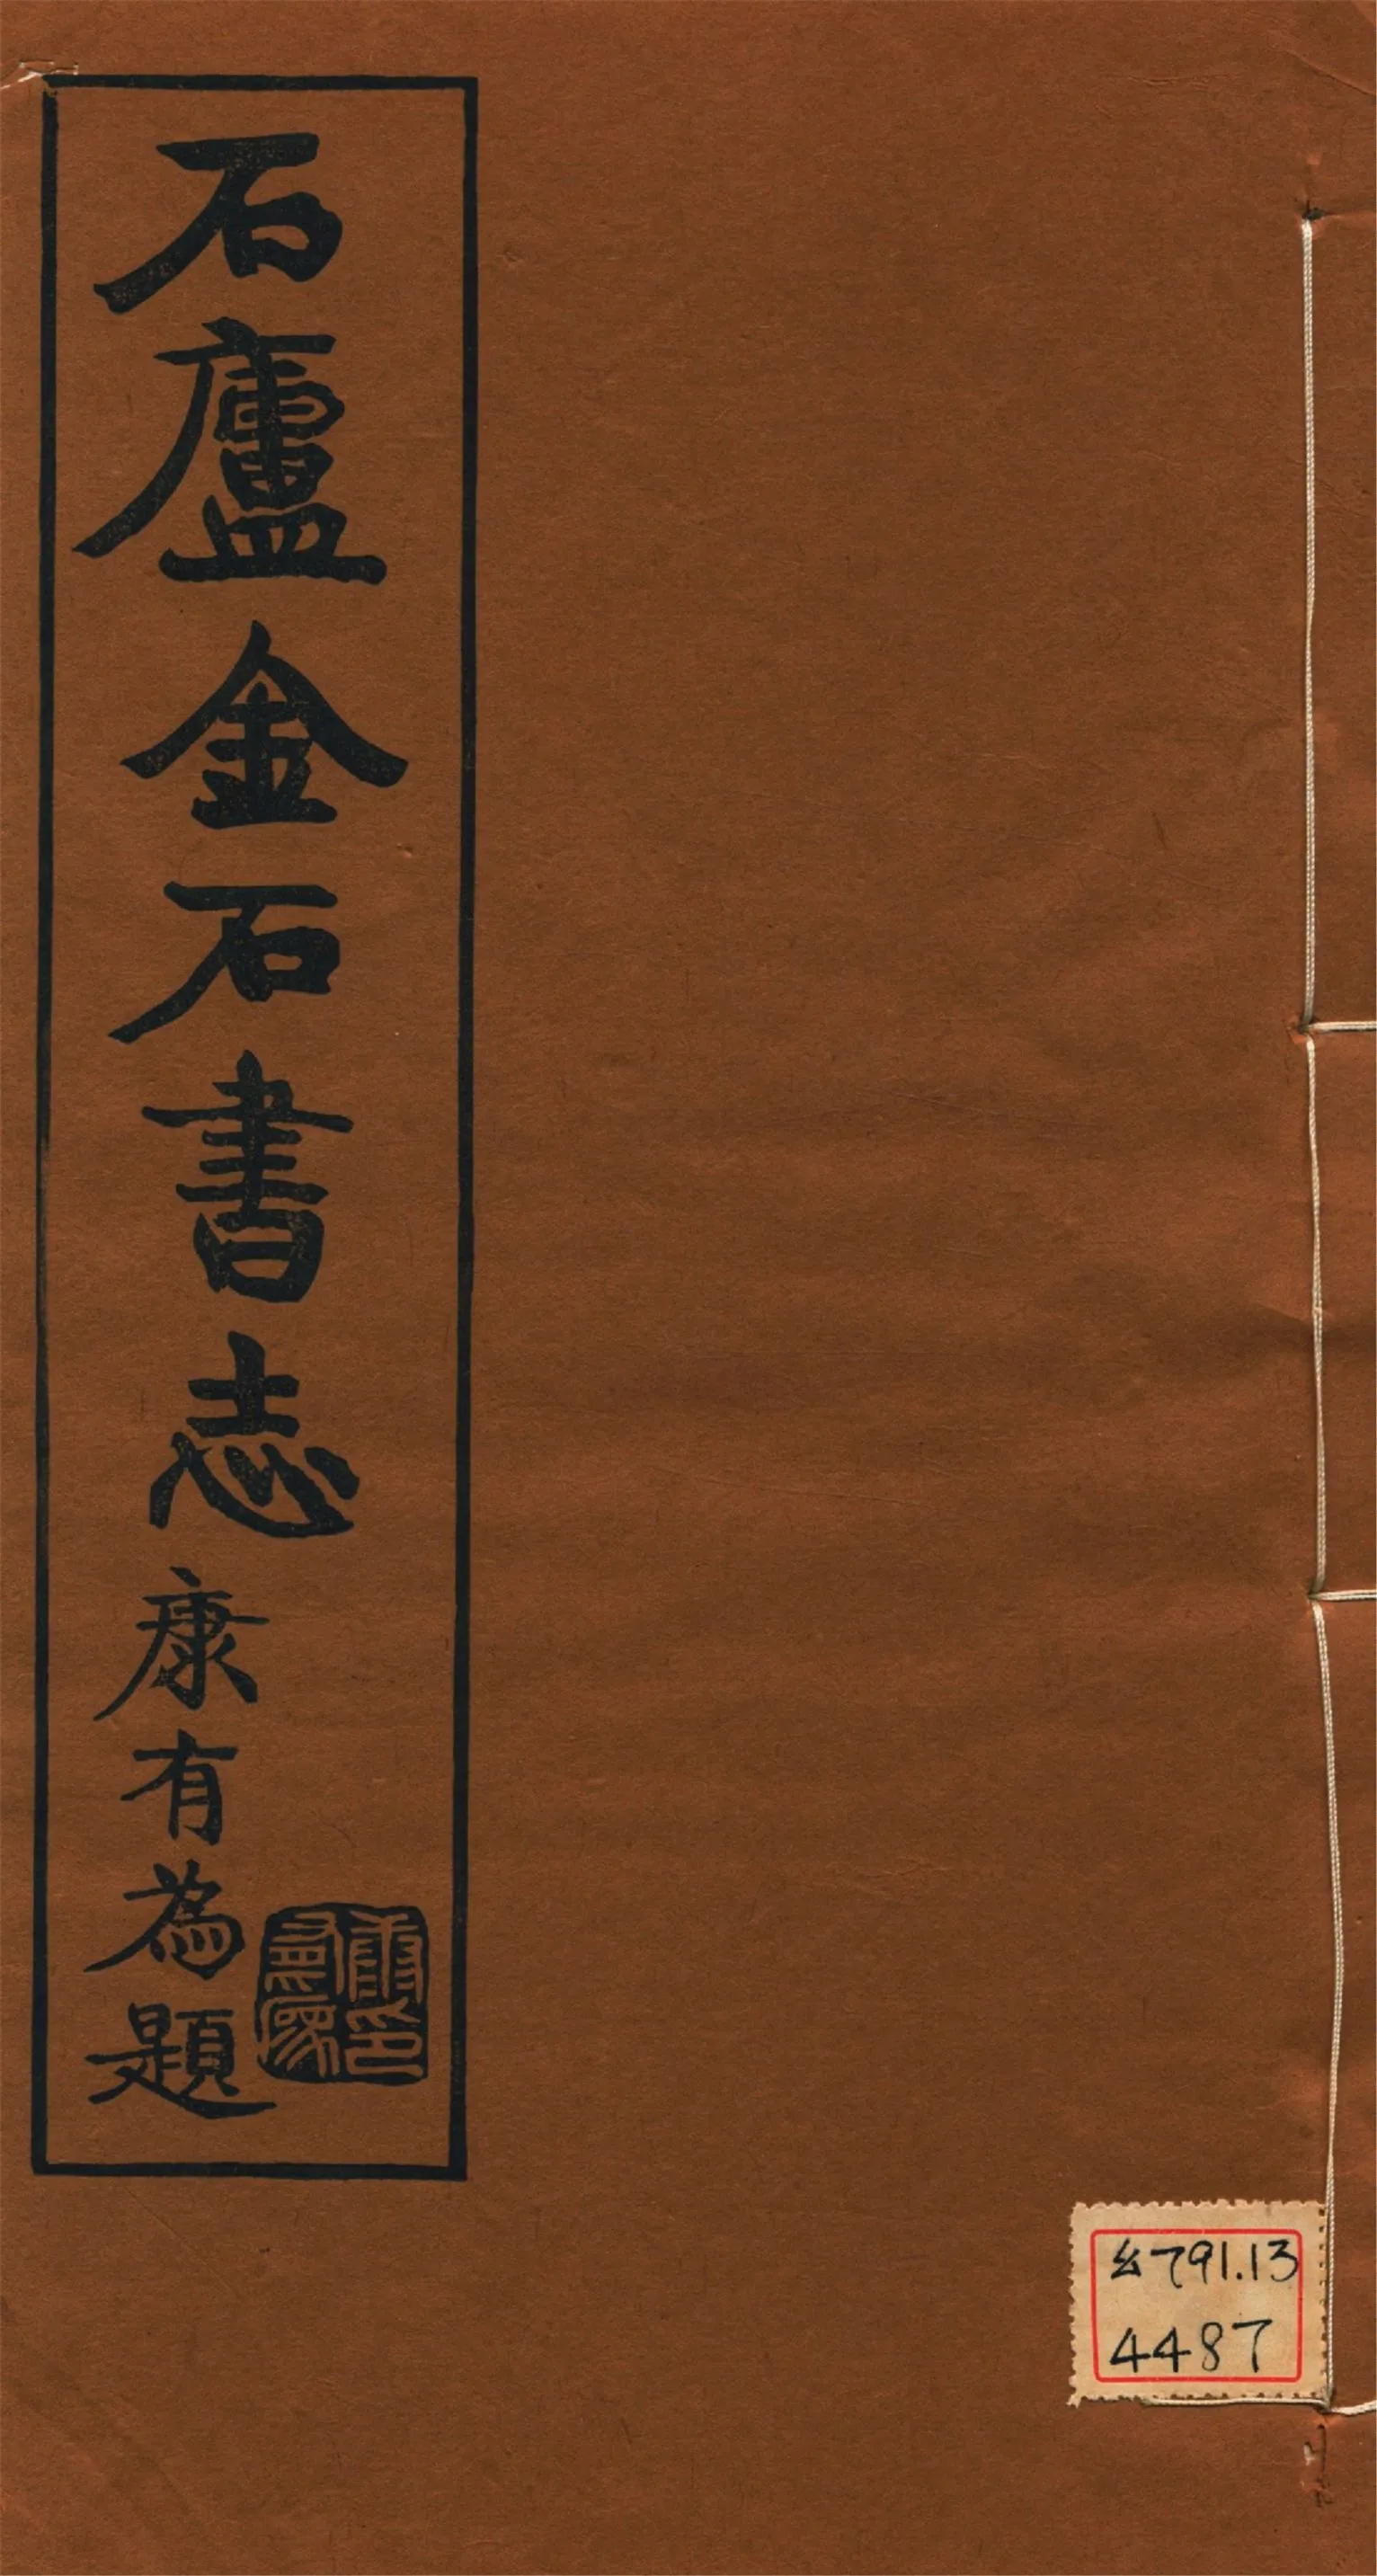 石廬金石書志
康有為題
791.13
4487